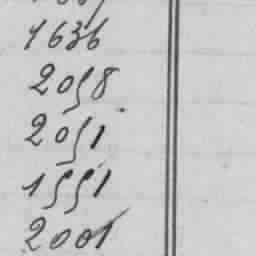 1636
2058
2051
1551
2001